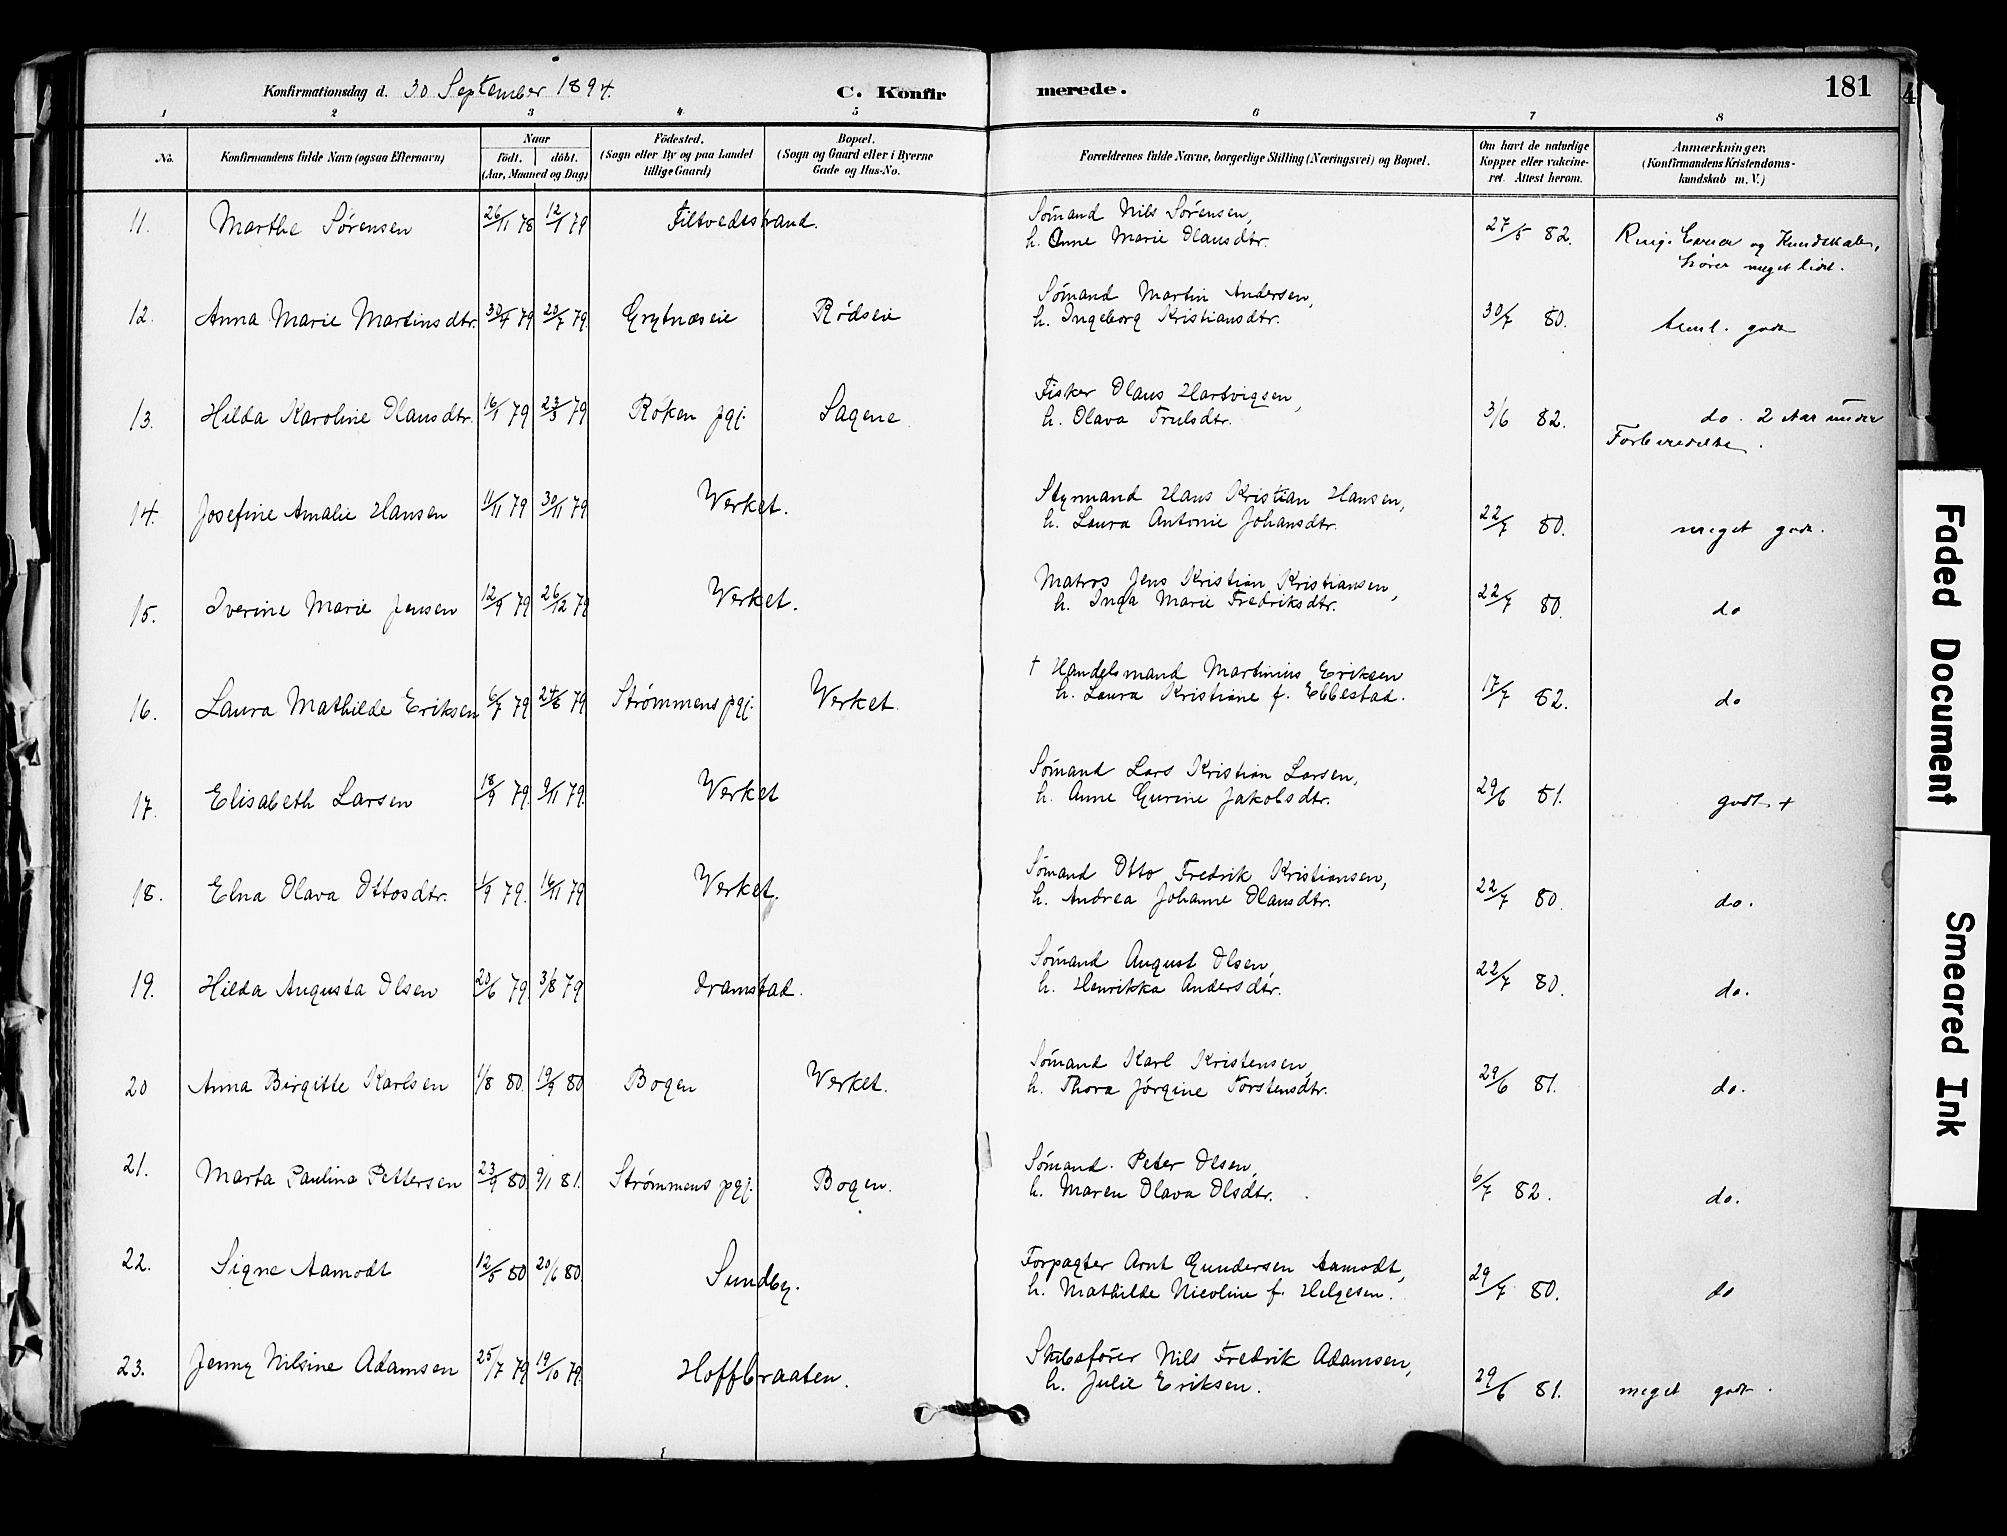 Konfirmationsdag d. 30 September 1894. C. Konfirmerede. 181
1 2 3 4 5 6 7 8
No. Konfirmandens fulde Navn (ogsaa Efternavn) Naar født. døbt. (Aar, Maaned og Dag) Fødested. (Sogn eller By og paa Landet tillige Gaard) Bopæl. (Sogn og Gaard eller i Byerne Gade og Hus-No. Forældrenes fulde Navne, borgerlige Stilling (Næringsvei) og Bopæl. Om havt de naturlige Kopper eller vakcineret. Attest herom. Anmærkninger. (Konfirmandens Kristendomskundskab m. V.)
11. Marthe Sørensen 26/11 78 12/1 79 Filtvedtstrand. Sømand Nils Sørensen, 27/5 82. Ringe Evner og Kundskaber,
h. Anne Marie Olausdtr. hører meget lidt.
12. Anna Marie Martinsdtr. 30/4 79 20/7 79. Grytnæseie Rødseie Sømand Martin Andersen, 30/7 80. teml. godt
h. Ingeborg Kristiansdtr.
13. Hilda Karoline Olausdtr. 16/1 79 23/3 79 Røken pgj. Sagene Fisker Olaus Hartvigsen, 3/6 82. do. 2 Aar under
h. Olava Trulsdtr. Forberedelse.
14. Josefine Amalie Hansen 11/11 79 30/11 79 Verket. Styrmand Hans Kristian Hansen, 22/7 80. meget godt.
h. Laura Antonie Johansdtr.
15. Iverine Marie Jensen 12/9 79 26/12 79 Verket. Matros Jens Kristian Kristiansen, 22/7 80. do
h. Inga Marie Fredriksdtr.
16. Laura Mathilde Eriksen 6/7 79 24/8 79 Strømmens pgj. Verket. † Handelsmand Martinius Eriksen 17/7 82. do
h. Laura Kristiane f. Ebbestad.
17. Elisabeth Larsen 18/9 79. 9/11 79. Verket Sømand Lars Kristian Larsen, 29/6 81. godt +
h. Anne Gurine Jakobsdtr.
18. Elna Olava Ottosdtr. 1/9 79. 16/11 79 Verket. Sømand Otto Fredrik Kristiansen, 22/7 80. do.
h. Andrea Johanne Olausdtr.
19. Hilda Augusta Olsen 20/6 79. 3/8 79 Tramstad. Sømand August Olsen, 22/7 80. do.
h. Henrikka Andersdtr.
20 Anna Birgitte Karlsen 1/8 80. 19/9 80 Bogen Verket. Sømand Karl Kristensen, 29/6 81. do.
h. Thora Jørgine Torstensdtr.
21. Marta Paulina Pettersen 23/9 80. 9/1 81. Strømmens pgj. Bogen. Sømand. Peter Olsen, 6/7 82. do.
h. Maren Olava Olsdtr.
22. Signe Aamodt 12/5 80 20/6 80. Sundby. Forpagter Arnt Gundersen Aamodt, 29/7 80. do
h. Mathilde Nicoline f. Helgesen.
23. Jenny Nilsine Adamsen 25/7 79 19/10 79. Hoffbraaten. Skibsfører Nils Fredrik Adamsen, 29/6 81. meget godt.
h. Julie Eriksen.
Faded Document
Smeared Ink